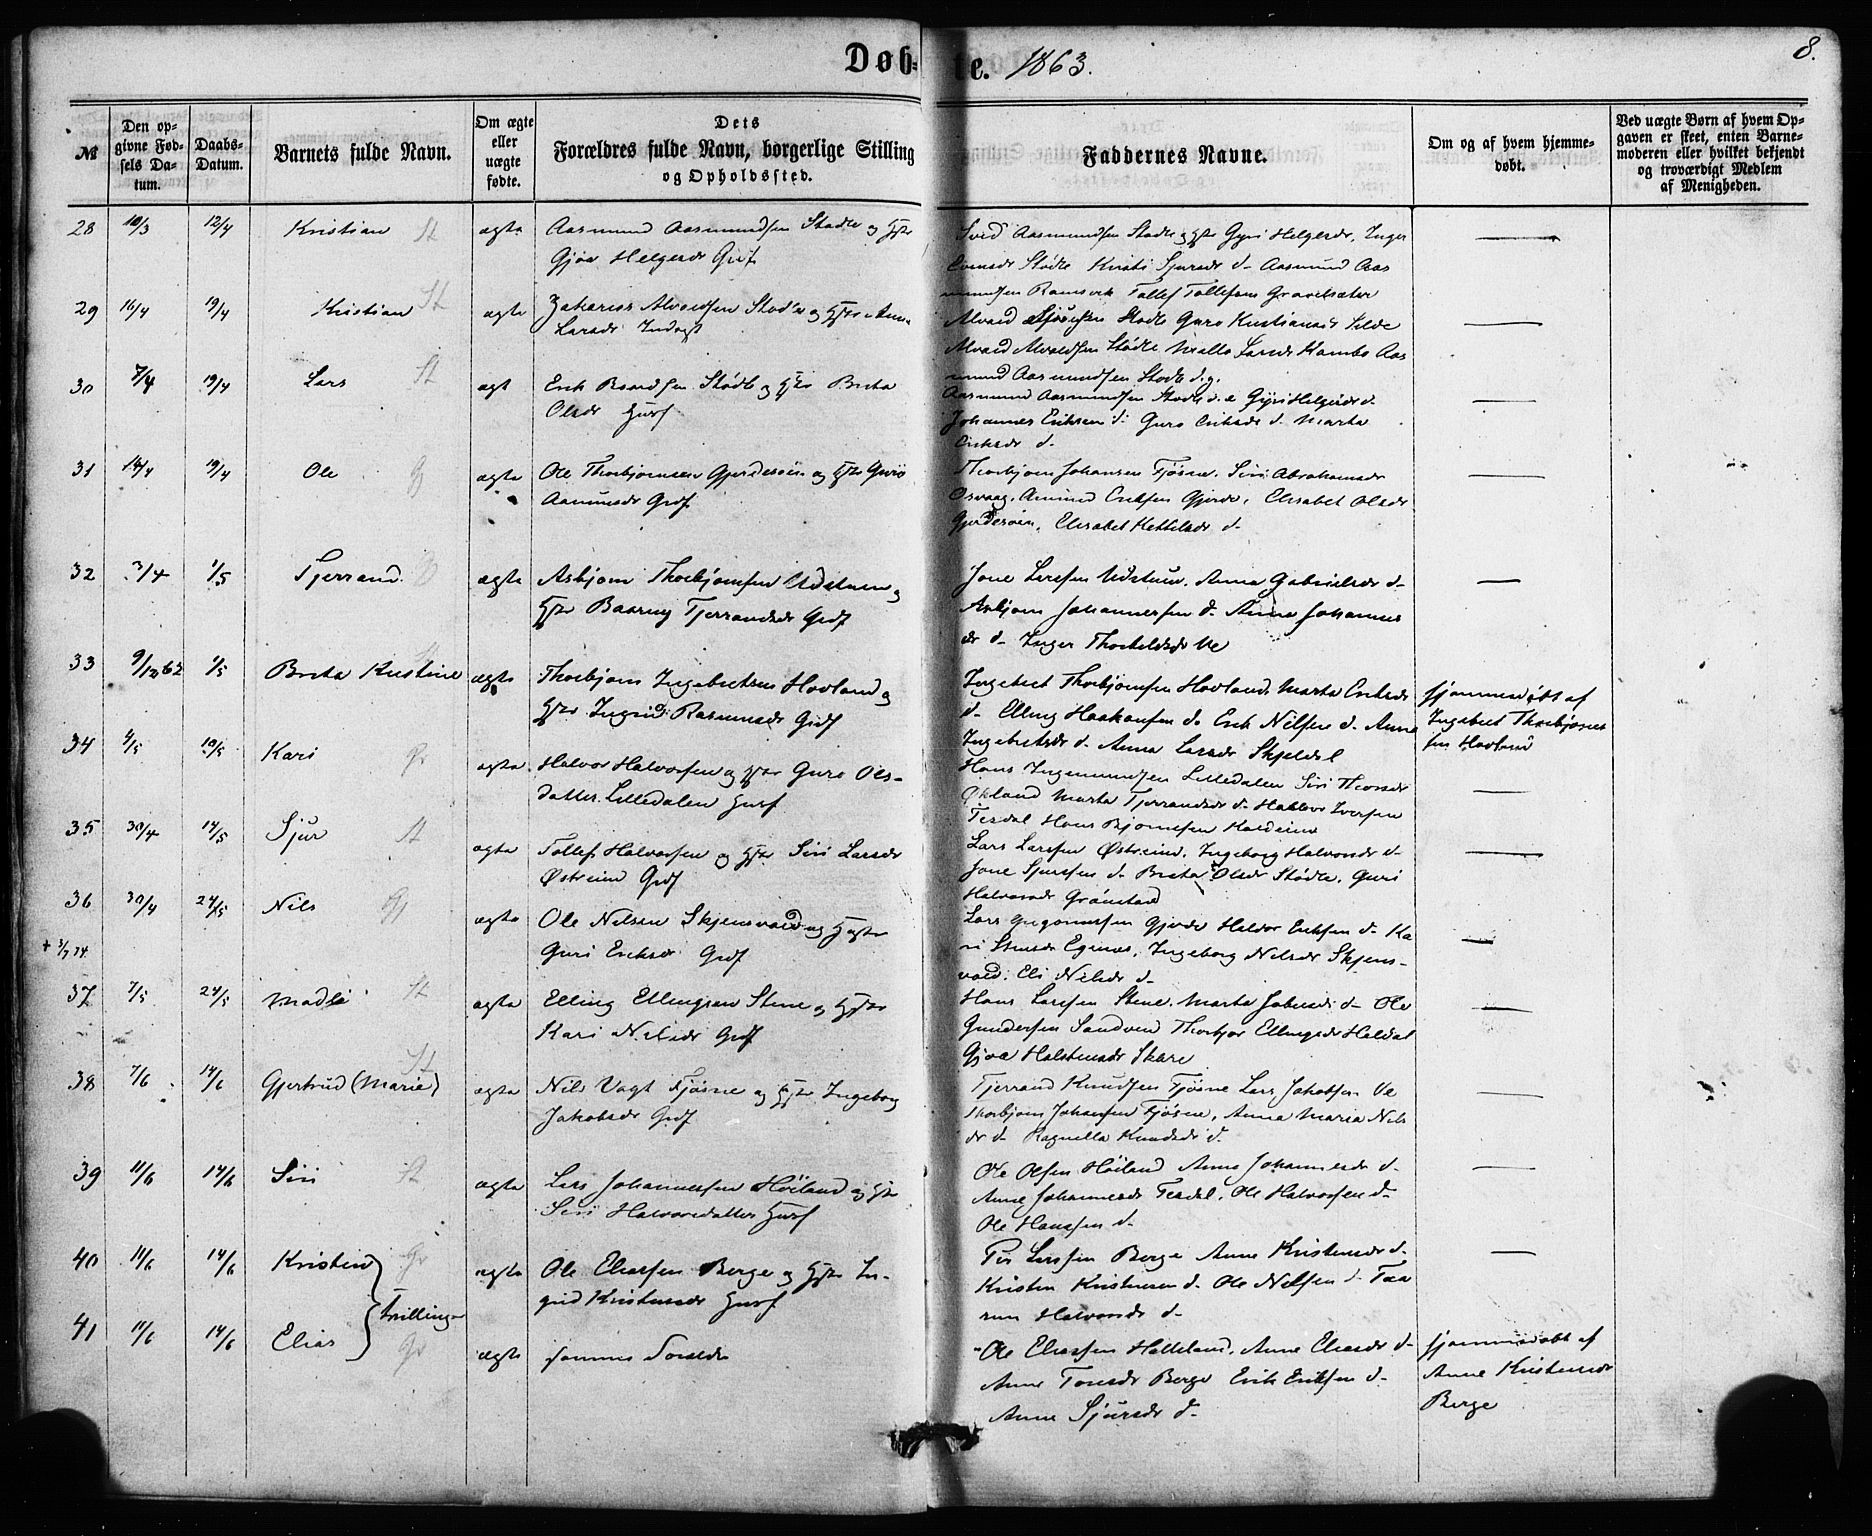 Døbte. 1863.
8.
№
Den opgivne Fødsels Datum.
Daabs-Datum.
Barnets fulde Navn.
Om ægte eller uægte fødte.
Dets Forældres fulde Navn, borgerlige Stilling og Opholdssted.
Faddernes Navne.
Om og af hvem hjemmedøbt.
Ved uægte Børn af hvem Opgaven er skeet, enten Barnemoderen eller hvilket bekjendt og troværdigt Medlem af Menigheden.
28 10/3 12/4 Kristian St ægte Aasmund Aasmundsen Stødle og Hst
Gjøa Helgesdr Grdf
Aasmundsen Stødle og Hst Gyri Helgesdr, Inger
Stødle Kristi Sjursdr d- Aasmund Aas
mundsen Ramsvik Tollef Tollefsen
29 16/4 19/4 Kristian St ægte Zakarias Alvaldsen Stødle og Hst
Larsdr
Alvald Stødle Guro Kristiansdr
Alvald Alvaldsen Stødle Larsdr Aas
mund Aasmundsen Stødle
30 7/4 19/4 Lars St ægt Erik Baardsen Stødle og Hst Brita
Olsdr Husf
Aasmund Aasmundsen Stødle Gyri Helgesdr d-
Johannes Eriksen d- Guro Eriksdr d- Marta
Eriksdr d-
31 14/4 19/4 Ole G ægte Ole Thorbjørnsen Gjerdesøien og Hst Guro
Aamunsdr Grdf
Thorbjørn Johansen Fjøsne, Siri Abrahamsdr
Osvaag, Amund Eriksen Gjerde, Elisabet Olsdr
Gjerdesøien, Elisabet Kettelsdr d-
32 3/4 1/5 Tjerrand ægte Asbjørn Thorbjørnsen Udstuen og
Hst Baarny Tjerrandsdr Grdf
Jone Larsen Udstuen, Anna Gabrielsdr d-
Asbjørn Johannessen d- Anna Johannes
dr d- Inger Thorkildsdr Ve
33 9/12 62 1/5 Brita Kristine ægte Thorbjørn Ingebretsen Hovland og
Hst Ingrid Rasmusdr Grdf
Ingebret Thorbjørnsen Hovland, Marta Eriksdr
d- Elling Haakonsen d- Erik Nilsen d- Anna
Ingebretsdr d- Anna Larsdr Skjeldal
Hjemmedøbt af
Ingebret Thorbjørn
sen Hovland
34 4/5 10/5 Kari Gr ægte Halvor Halvorsen og Hst Guro Ols-
datter Lilledalen Husf
Hans Ingemundsen Lilledalen Siri Thorsdr
Økland Marta Tjerrandsdr d- Halvor Iversen
Tesdal Hans Bjørnsen
35 30/4 14/5 Sjur St ægte Tollef Halvorsen og Hst Siri Larsdr
Østreim Grdf
Lars Larsen Østreim, Ingeborg Halvorsdr d-
Jone Sjursen d- Brita Olsdr Stødle, Guri
Halvorsdr Grønstad
36 30/4 24/5 Nils Gj ægte Ole Nilsen Skjensvold og Hst
Guri Eriksdr Grdf
Lars Gjerde Halvor Eriksen d- Ka
ri Egenes, Ingeborg Nilsdr Skjens-
vold, Eli Nilsdr d-
+ 3/7 74
37 7/5 24/5 Madli St ægte Elling Ellingsen Stene og Hst
Kari Nilsdr Grdf
Hans Larsen Stene, Marta d- Ole
Gundersen Sandven Thorbjør Ellingsdr Haldal
Gjøa Halstensdr Skare
38 7/6 14/6 Gjertrud (Marie) St ægte Nils Vagt Fjøsne og Hst Ingeborg
Jakobsdr Grdf
Tjerrand Knudsen Fjøsne Lars Jakobsen Ve
Thorbjørn Johansen Fjøsne, Anna Maria Nils
dr d- Ragnilla Knudsdr d-
39 11/6 14/6 Siri St ægte Lars Johannessen Høiland og Hst
Siri Halvorsdatter Husf
Ole Olsen Høiland Anna Johannesdr d-
Anne Johannesdr Tesdal, Ole Halvorsen d-
Ole Hanssen d-
40 11/6 14/6 Kristen Gr ægte Ole Eliassen Berge og Hst In-
grid Kristensdr Husf
Per Larsen Berge Anne Kristensdr d-
Kristen Kristensen d- Ole Nilsen d- Taa
run Halvorsdr d-
Tvillinger
41 11/6 14/6 Elias Gr ægte samme Foreldre
Ole Eliassen Halleland, Anne Eliasdr d-
Anne Tonsdr Berge Erik Eriksen d-
Anne Sjursdr d-
Hjemmedøbt af
Anne Kristensdr
Berge